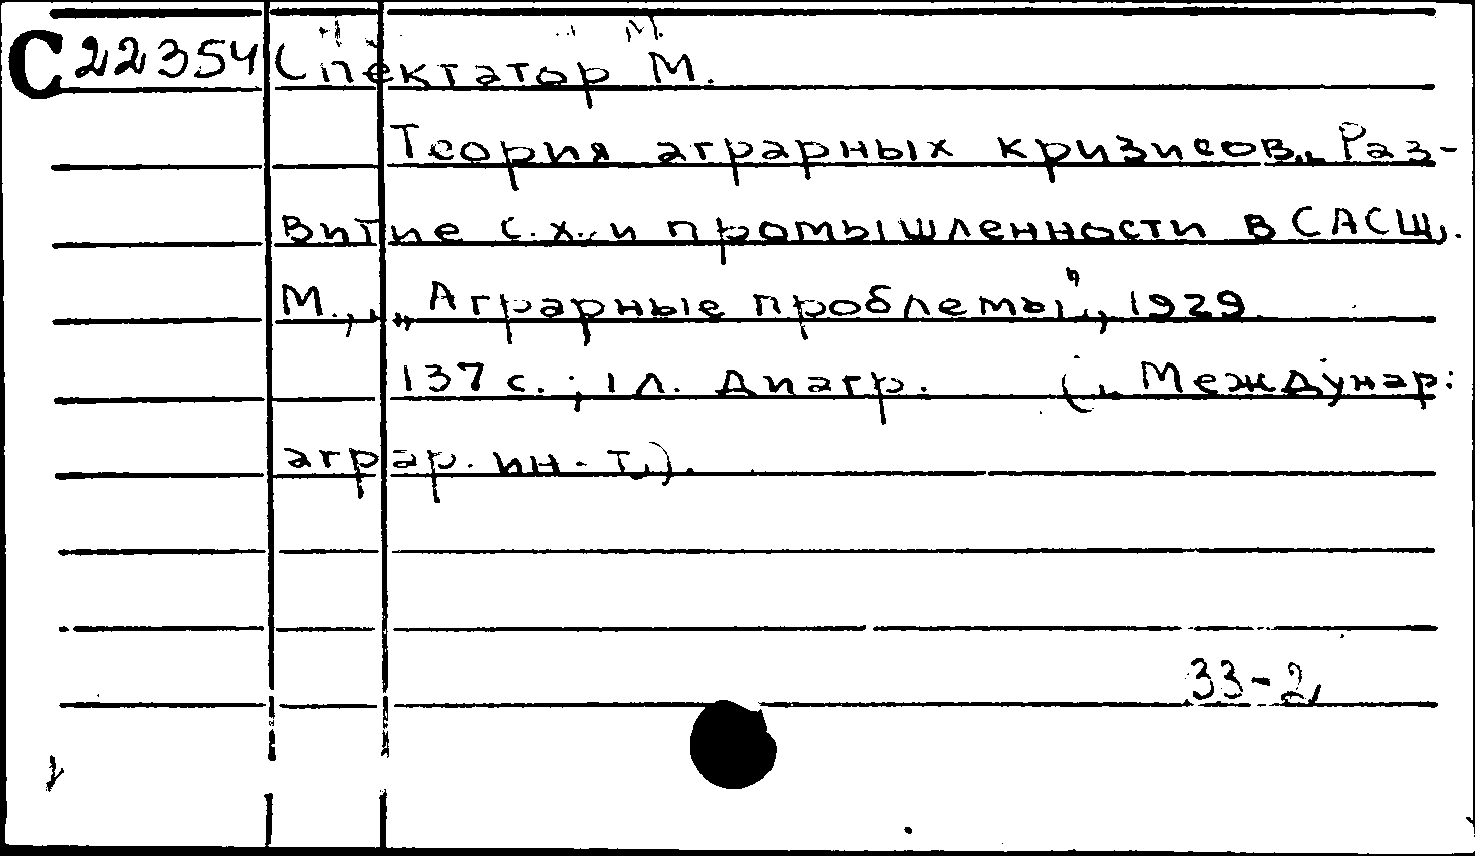 С 22354 Спектатор М.
Теория аграрных кризисов. Раз-
витие с.х. и промышленности в САСШ.
М., „Аграрные проблемы", 1929.
137 с.; 1 л. диагр. (Междунар.
аграр. ин-т.).
33-2